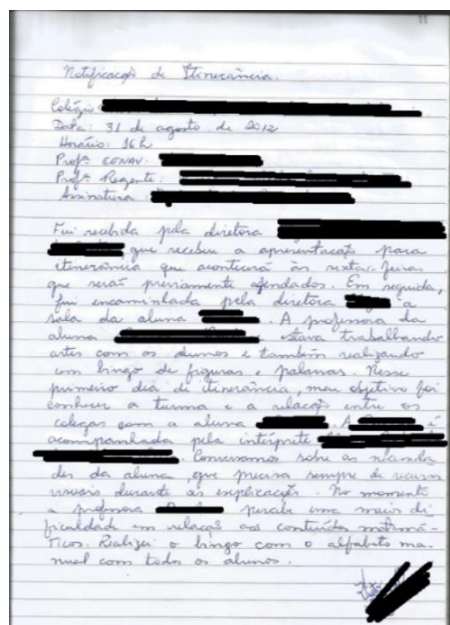 Notificação de Itinerância.
Colégio:
Data: 31 de agosto de 2012
Horário: 16h
Profª CONAV:
Profª Regente:
Assinatura
Fui recebida pela diretora
que recebeu a apresentação para
itinerância que acontecerá às sextas-feiras
que serão previamente agendados. Em seguida,
fui encaminhada pela diretora a
sala da aluna . A professora da
aluna estava trabalhando
artes com os alunos e também realizando
um bingo de figuras e palavras. Nesse
primeiro dia de itinerância, meu objetivo foi
conhecer a turma e a relação entre os
colegas com a aluna . A é
acompanhada pela intérprete
. Conversamos sobre as necessida
des da aluna, que precisa sempre de recursos
visuais durante as explicação. No momento
a professora percebe uma maior di
ficuldade em relação aos conteúdos matemá-
ticos. Realizei o bingo com o alfabeto ma-
nual com todos os alunos.